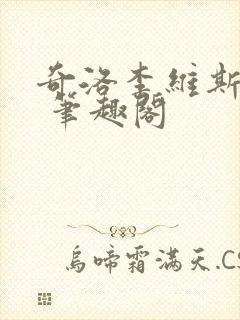 奇洛李維斯
筆趣閣
烏啼霜滿天.CS